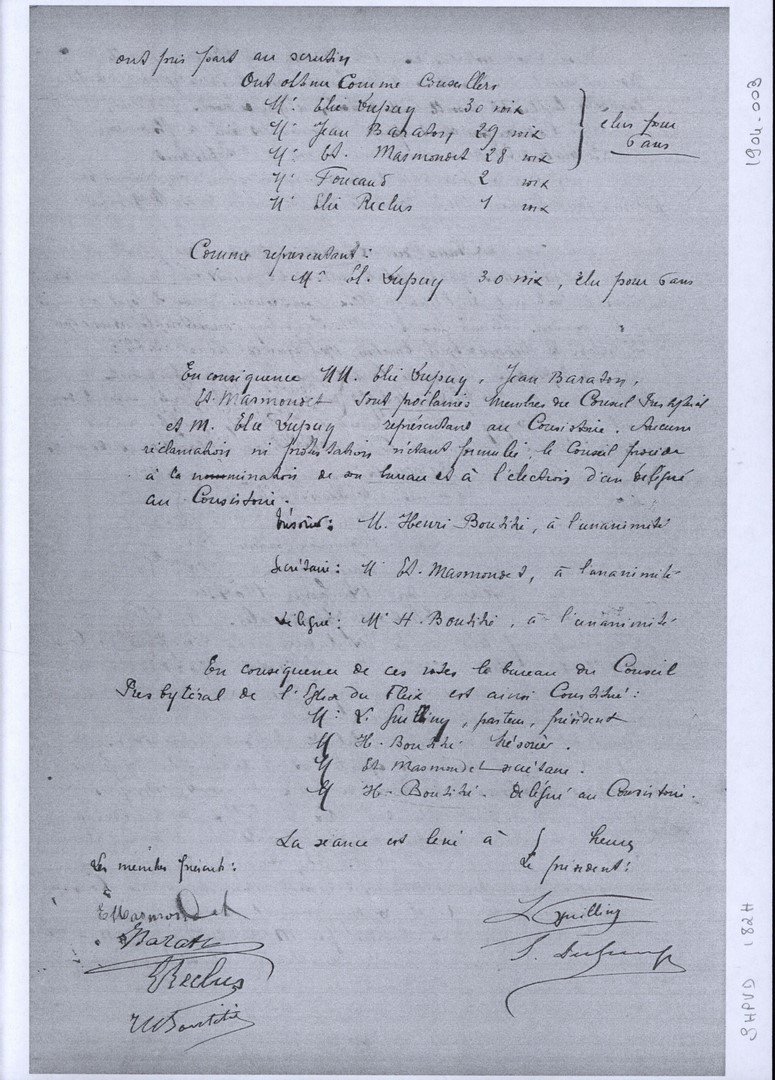 ont pris part au scrutin
Ont obtenu Comme Conseillers
Mr Elie Dupuy 30 voix
Mr Jean Baraton 29 voix
Mr Et. Masmondet 28 voix
élus pour
6 ans
Mr Foucaud 2 voix
Mr Elie Reclus 1 voix
Comme représentant :
Mr El. Dupuy 30 voix, élu pour 6 ans
En conséquence MM. Elie Dupuy, Jean Baraton,
Et. Masmondet sont proclamés membres du Conseil Presbytéral
et M. Elie Dupuy représentant au Consistoire. Aucune
réclamation ni protestation n'étant formulée, le Conseil procède
à la nomination de son bureau et à l'élection d'un délégué
au Consistoire.
Trésorier : M. Henri Boutitié, à l'unanimité
Secrétaire : M Et. Masmondet, à l'unanimité
Délégué : Mr H. Boutitié, à l'unanimité
En conséquence de ces votes le bureau du Conseil
Presbytéral de l'Eglise du Fleix est ainsi Constitué :
Mr L. Guilling, pasteur, président
M H. Boutitié trésorier.
M Et Masmondet secrétaire.
M H. Boutitié. délégué au Consistoire.
La séance est levé à heures
Les membres présents : Le président :
E Masmondet
Baraton
E Reclus
H Boutitié
L Guilling
1904-003
SHPVD 182H